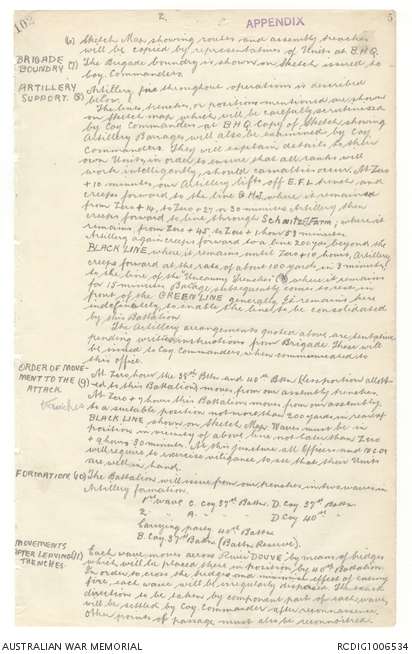 102
2.
APPENDIX
5
(6) Sketch Map showing routes and assembly trenches
will be copied by representatives of Units at B.H.Q.
BRIGADE BOUNDRY (7) The Brigade boundry is shown on Sketch issued to
Coy Commanders.
ARTILLERY SUPPORT. (8) Artillery fire throughout operations is described
below:
The lines, trenches, or positions mentioned are shown
on Sketch map which will be carefully scrutinised
by Coy Commanders at B.H.Q. Copy of Sketch, showing
Artillery Barrage, will also be examined by Coy
Commanders. They will explain details to their
own Units, in order to ensure that all ranks will
work intelligently, should casualties occur. At Zero
+ 10 minutes, our Artillery lifts off E.F.L. trench, and
creeps forward to the line where it remains
from Zero + 14 to Zero + 27 or 30 minutes. Artillery then
creeps forward to line through Schnitzel Farm, where it
remains from Zero + 45 to Zero + 1 hour 57 minutes.
Artillery again creeps forward to a line 200 yds beyond the
BLACK LINE, where it remains until Zero + 10 hours, Artillery
creeps forward at the rate of about 100 yards in 3 minutes
to the line of the "Uncanny Trench" where it remains
for 15 minutes. Barrage subsequently comes to rest, in
front of the GREEN LINE generally & remains here
indefinitely, to enable the line to be consolidated
by this Battalion.
The Artillery arrangements quoted above are tentative
pending written instructions from Brigade. These will
be issued to Coy Commanders, when communicated to
this office.
ORDER OF MOVEMENT TO THE ATTACK (9) At Zero hour the 38th Bttn. and 40th Bttn. (less portion allotted
to this Battalion) moves from our assembly trenches.
trenches
At Zero + 9 hours this Battalion moves from our assembly
to a suitable position not more than 200 yards in rear of
BLACK LINE shown on Sketch Map. Waves must be in
position in vicinity of above line not later than Zero
+ 9 hours 30 minutes. At this juncture, all Officers and N.C.Os
will require to exercise vigilance to see that their Units
are well in hand.
FORMATION. (10) The Battalion will issue from our trenches, in two waves in
Artillery formation.
1st wave C. Coy 37th Battn. D. Coy 37th Battn
2 " A. " " D Coy 40th "
Carrying party 40th Battn
B. Coy 37th Battn (Battn Reserve).
MOVEMENTS AFTER LEAVING TRENCHES. (11) Each wave moves across River DOUVE by means of bridges
which will be placed there in position by 40th Battalion.
In order to cross the bridges and minimise effect of enemy
fire, each wave will be irregularly disposed. The exact
direction to be taken by component part of each wave,
will be settled by Coy Commander after reconnaissance.
Other points of passage must also be reconnoitred
AUSTRALIAN WAR MEMORIAL
RCDIG1006534